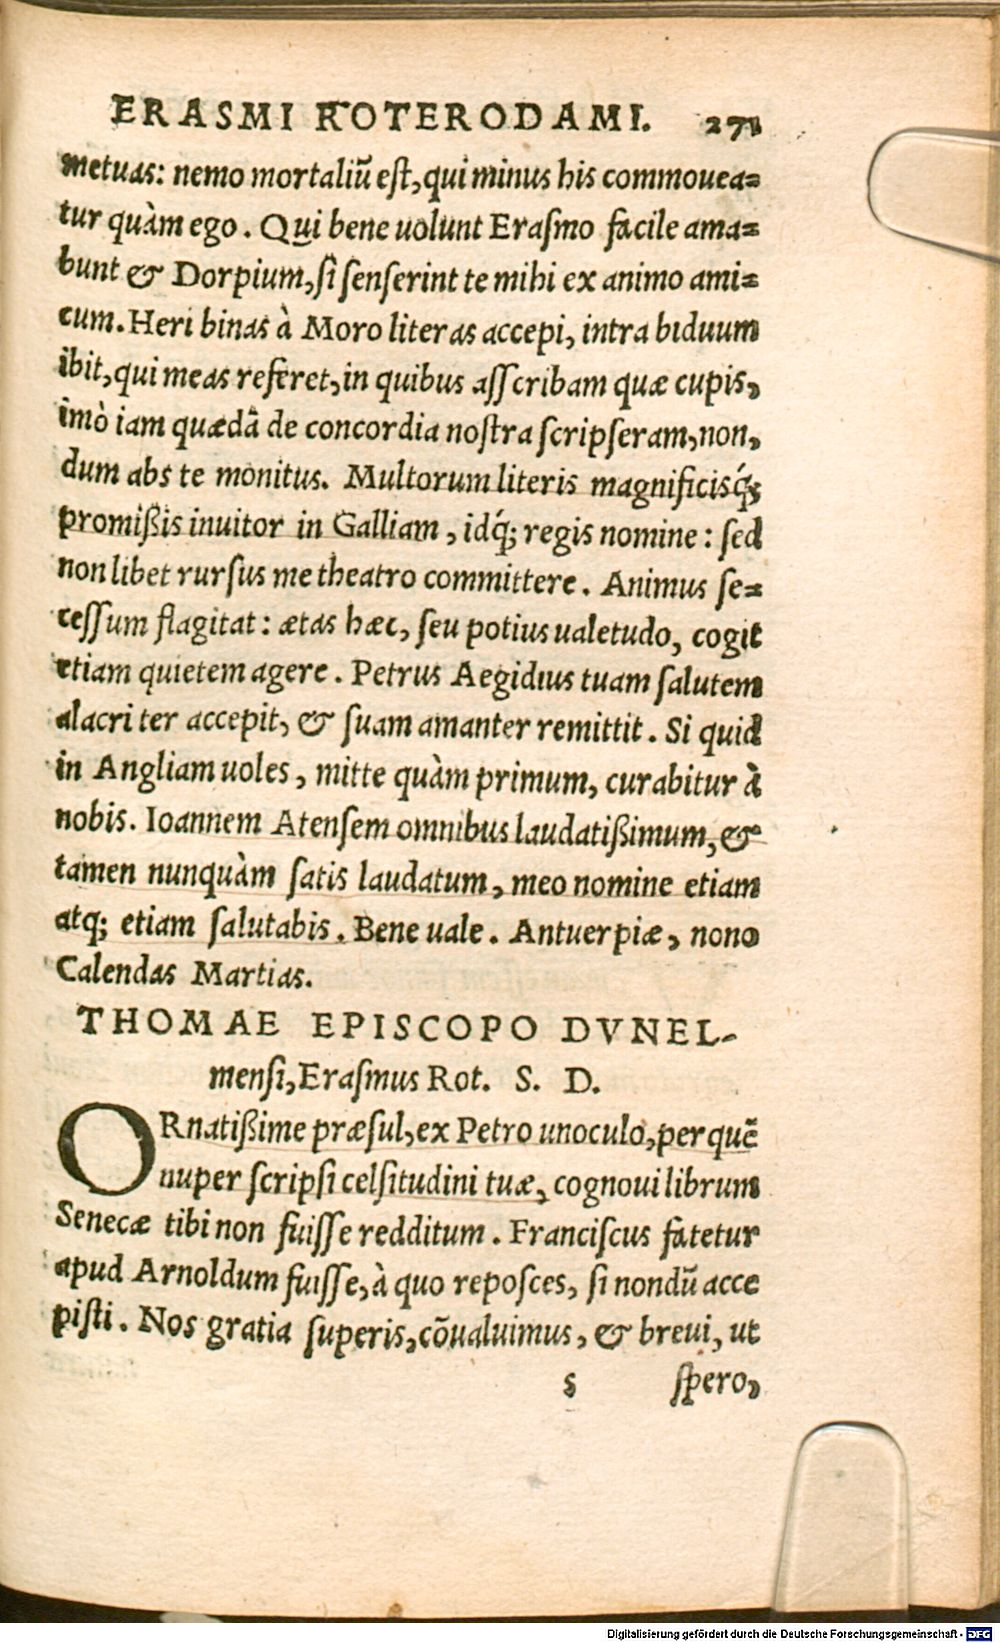 ERASMI ROTERODAMI. 271
metuas: nemo mortaliũ eſt, qui minus his commouea=
tur quàm ego. Qui bene uolunt Eraſmo facile ama=
bunt & Dorpium, ſi ſenſerint te mihi ex animo ami=
cum. Heri binas à Moro literas accepi, intra biduum
ibit, qui meas referet, in quibus aſſcribam quæ cupis,
imò iam quædã de concordia noſtra ſcripſeram, non,
dum abs te monitus. Multorum literis magnificisq́;
promißis inuitor in Galliam, idq́; regis nomine: ſed
non libet rurſus me theatro committere. Animus ſe=
ceſſum flagitat: ætas hæc, ſeu potius ualetudo, cogit
etiam quietem agere. Petrus Aegidius tuam ſalutem
alacriter accepit, & ſuam amanter remittit. Si quid
in Angliam uoles, mitte quàm primum, curabitur à
nobis. Ioannem Atenſem omnibus laudatißimum, &
tamen nunquàm ſatis laudatum, meo nomine etiam
atq; etiam ſalutabis. Bene uale. Antuerpiæ, nono
Calendas Martias.
THOMAE EPISCOPO DVNEL-
menſi, Eraſmus Rot. S. D.
ORnatißime præſul, ex Petro unoculo, per quẽ
nuper ſcripſi celſitudini tuæ, cognoui librum
Senecæ tibi non fuiſſe redditum. Franciſcus fatetur
apud Arnoldum fuiſſe, à quo repoſces, ſi nondũ acce
piſti. Nos gratia ſuperis, cõualuimus, & breui, ut
s ſpero,
Digitalisierung gefördert durch die Deutsche Forschungsgemeinschaft - DFG